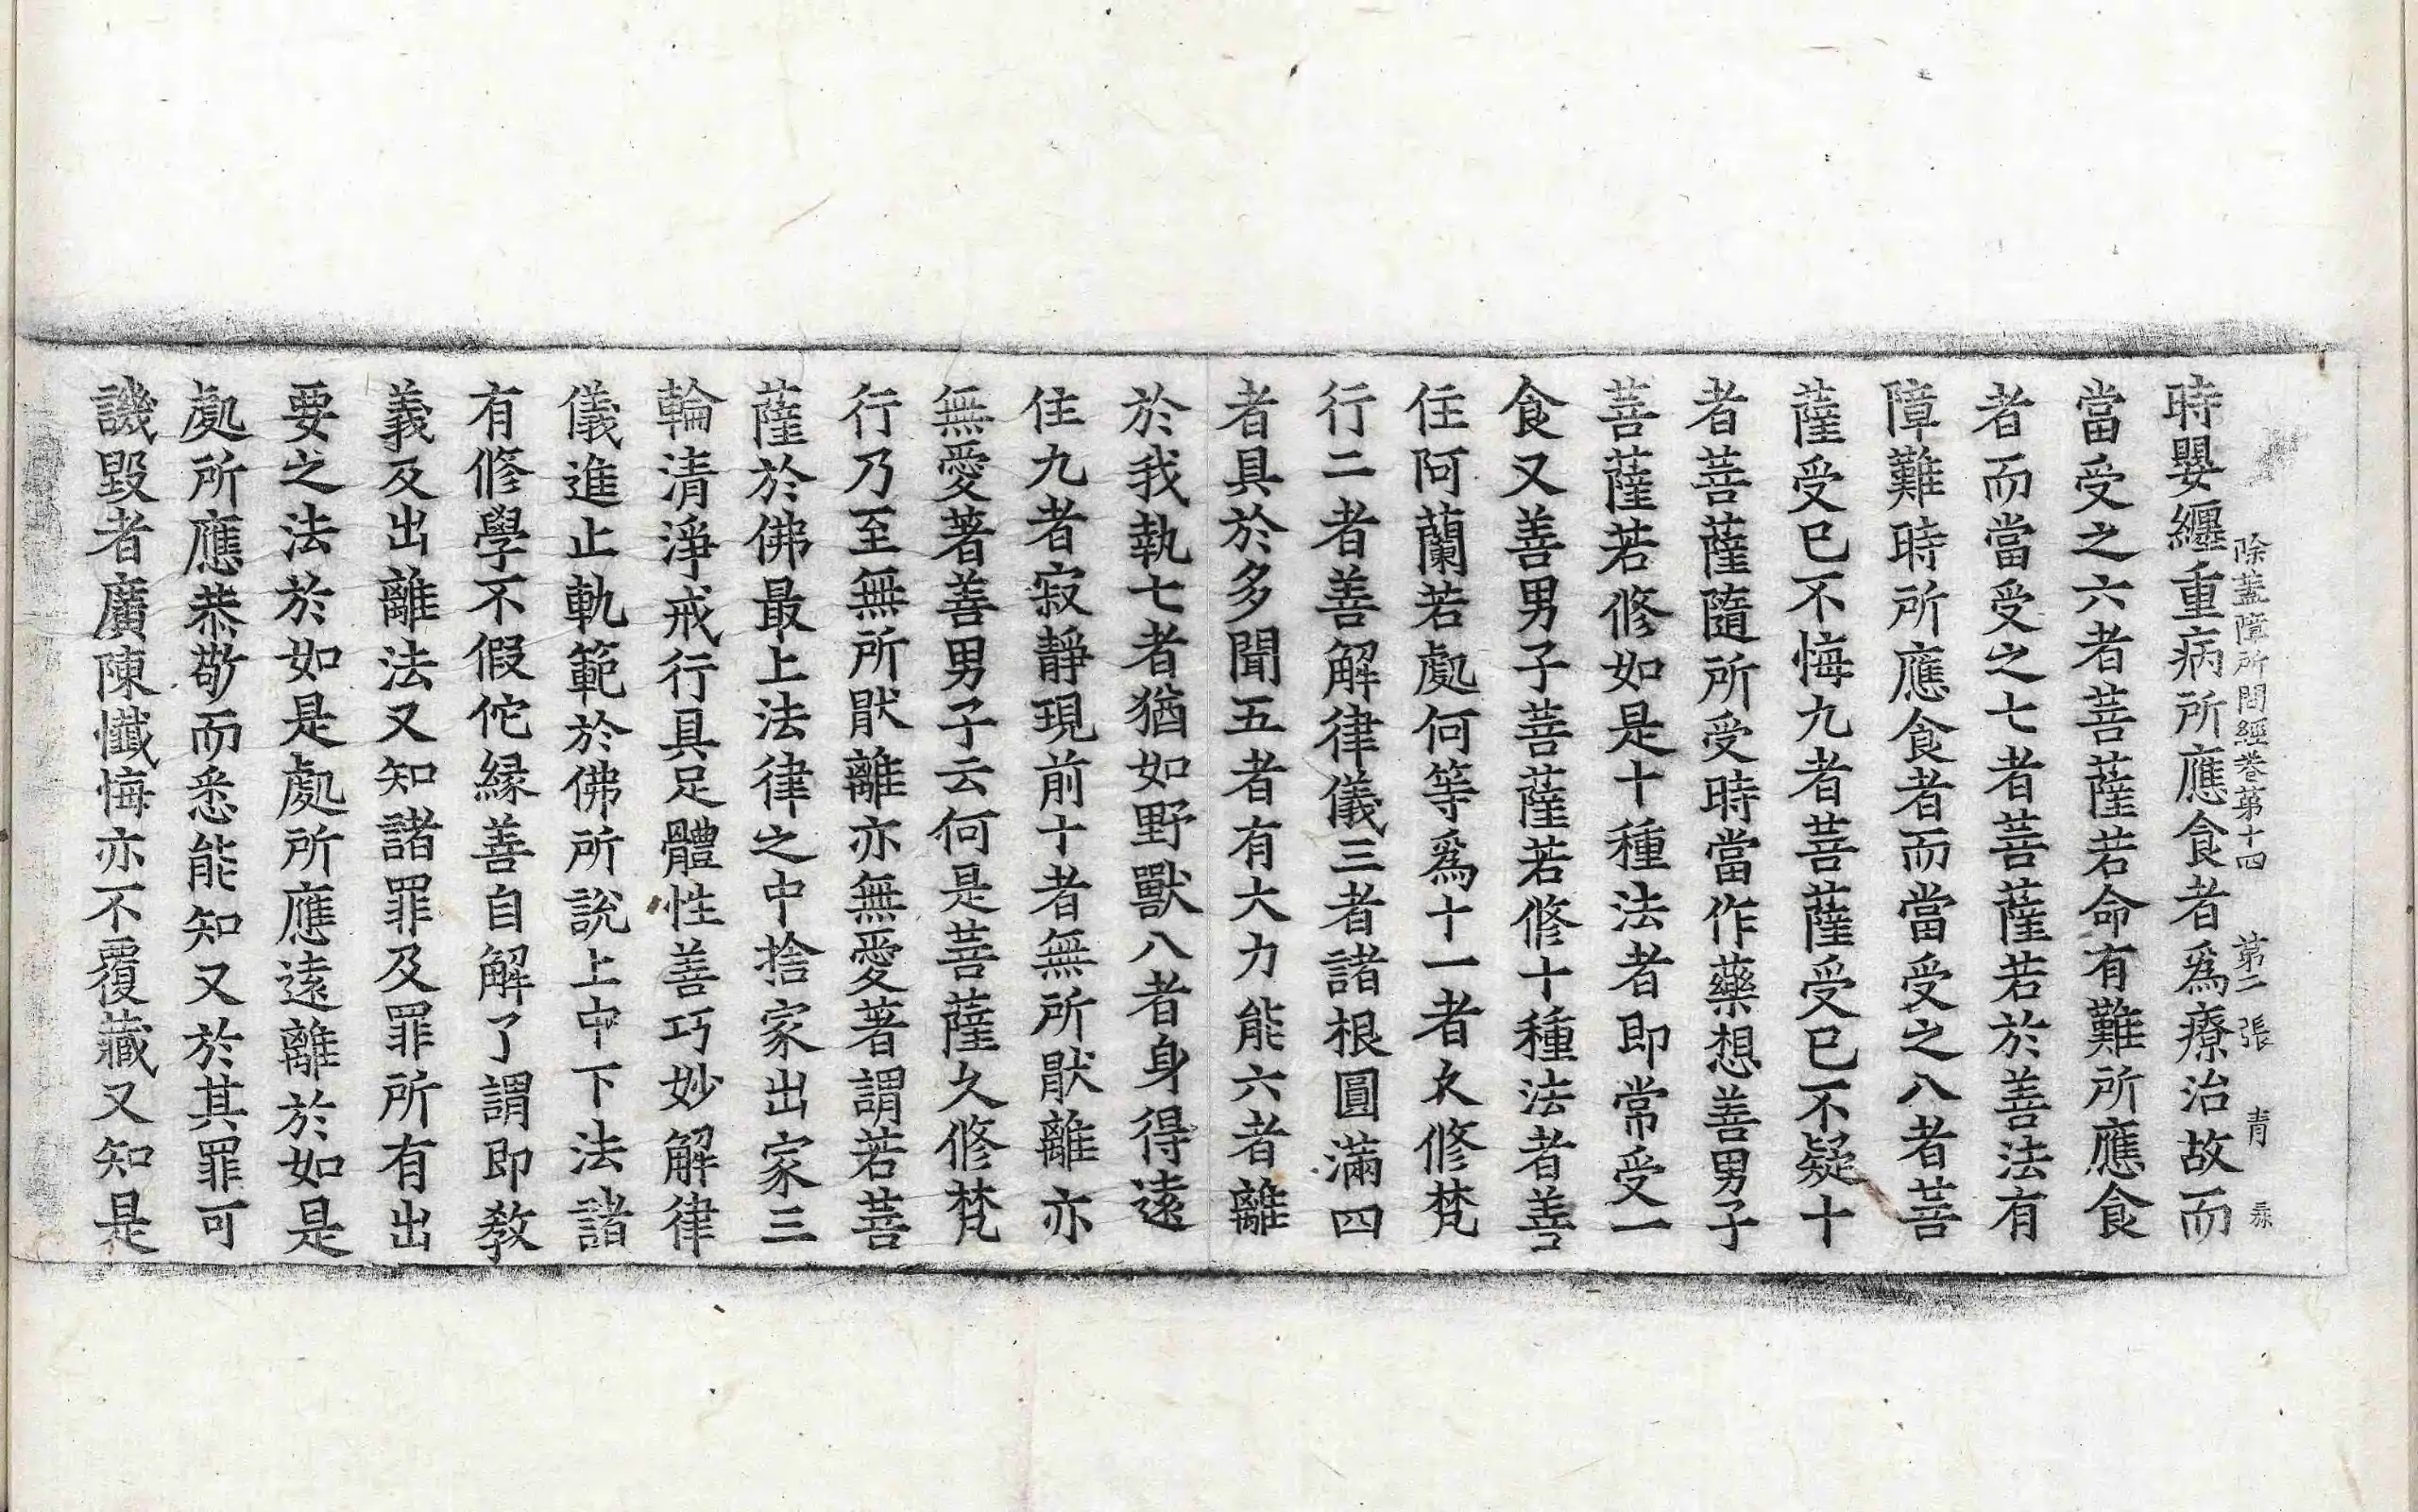 除蓋障所問經卷第十四 第二張 青
時嬰纏重病所應食者爲療治故而
當受之六者菩薩若命有難所應食
者而當受之七者菩薩若於善法有
障難時所應食者而當受之八者菩
薩受已不悔九者菩薩受已不疑十
者菩薩隨所受時當作藥想善男子
菩薩若修如是十種法者即常受一
食又善男子菩薩若修十種法者善
住阿蘭若處何等爲十一者久修梵
行二者善解律儀三者諸根圓滿四
者具於多聞五者有大力能六者離
於我執七者猶如野獸八者身得遠
住九者寂靜現前十者無所猒離亦
無愛著善男子云何是菩薩久修梵
行乃至無所猒離亦無愛著謂若菩
薩於佛最上法律之中捨家出家三
輪清淨戒行具足體性善巧妙解律
儀進止軌範於佛所說上中下法諸
有修學不假佗緣善自解了謂即教
義及出離法又知諸罪及罪所有出
要之法於如是處所應遠離於如是
處所應恭敬而悉能知又於其罪可
譏毀者廣陳懺悔亦不覆藏又知是